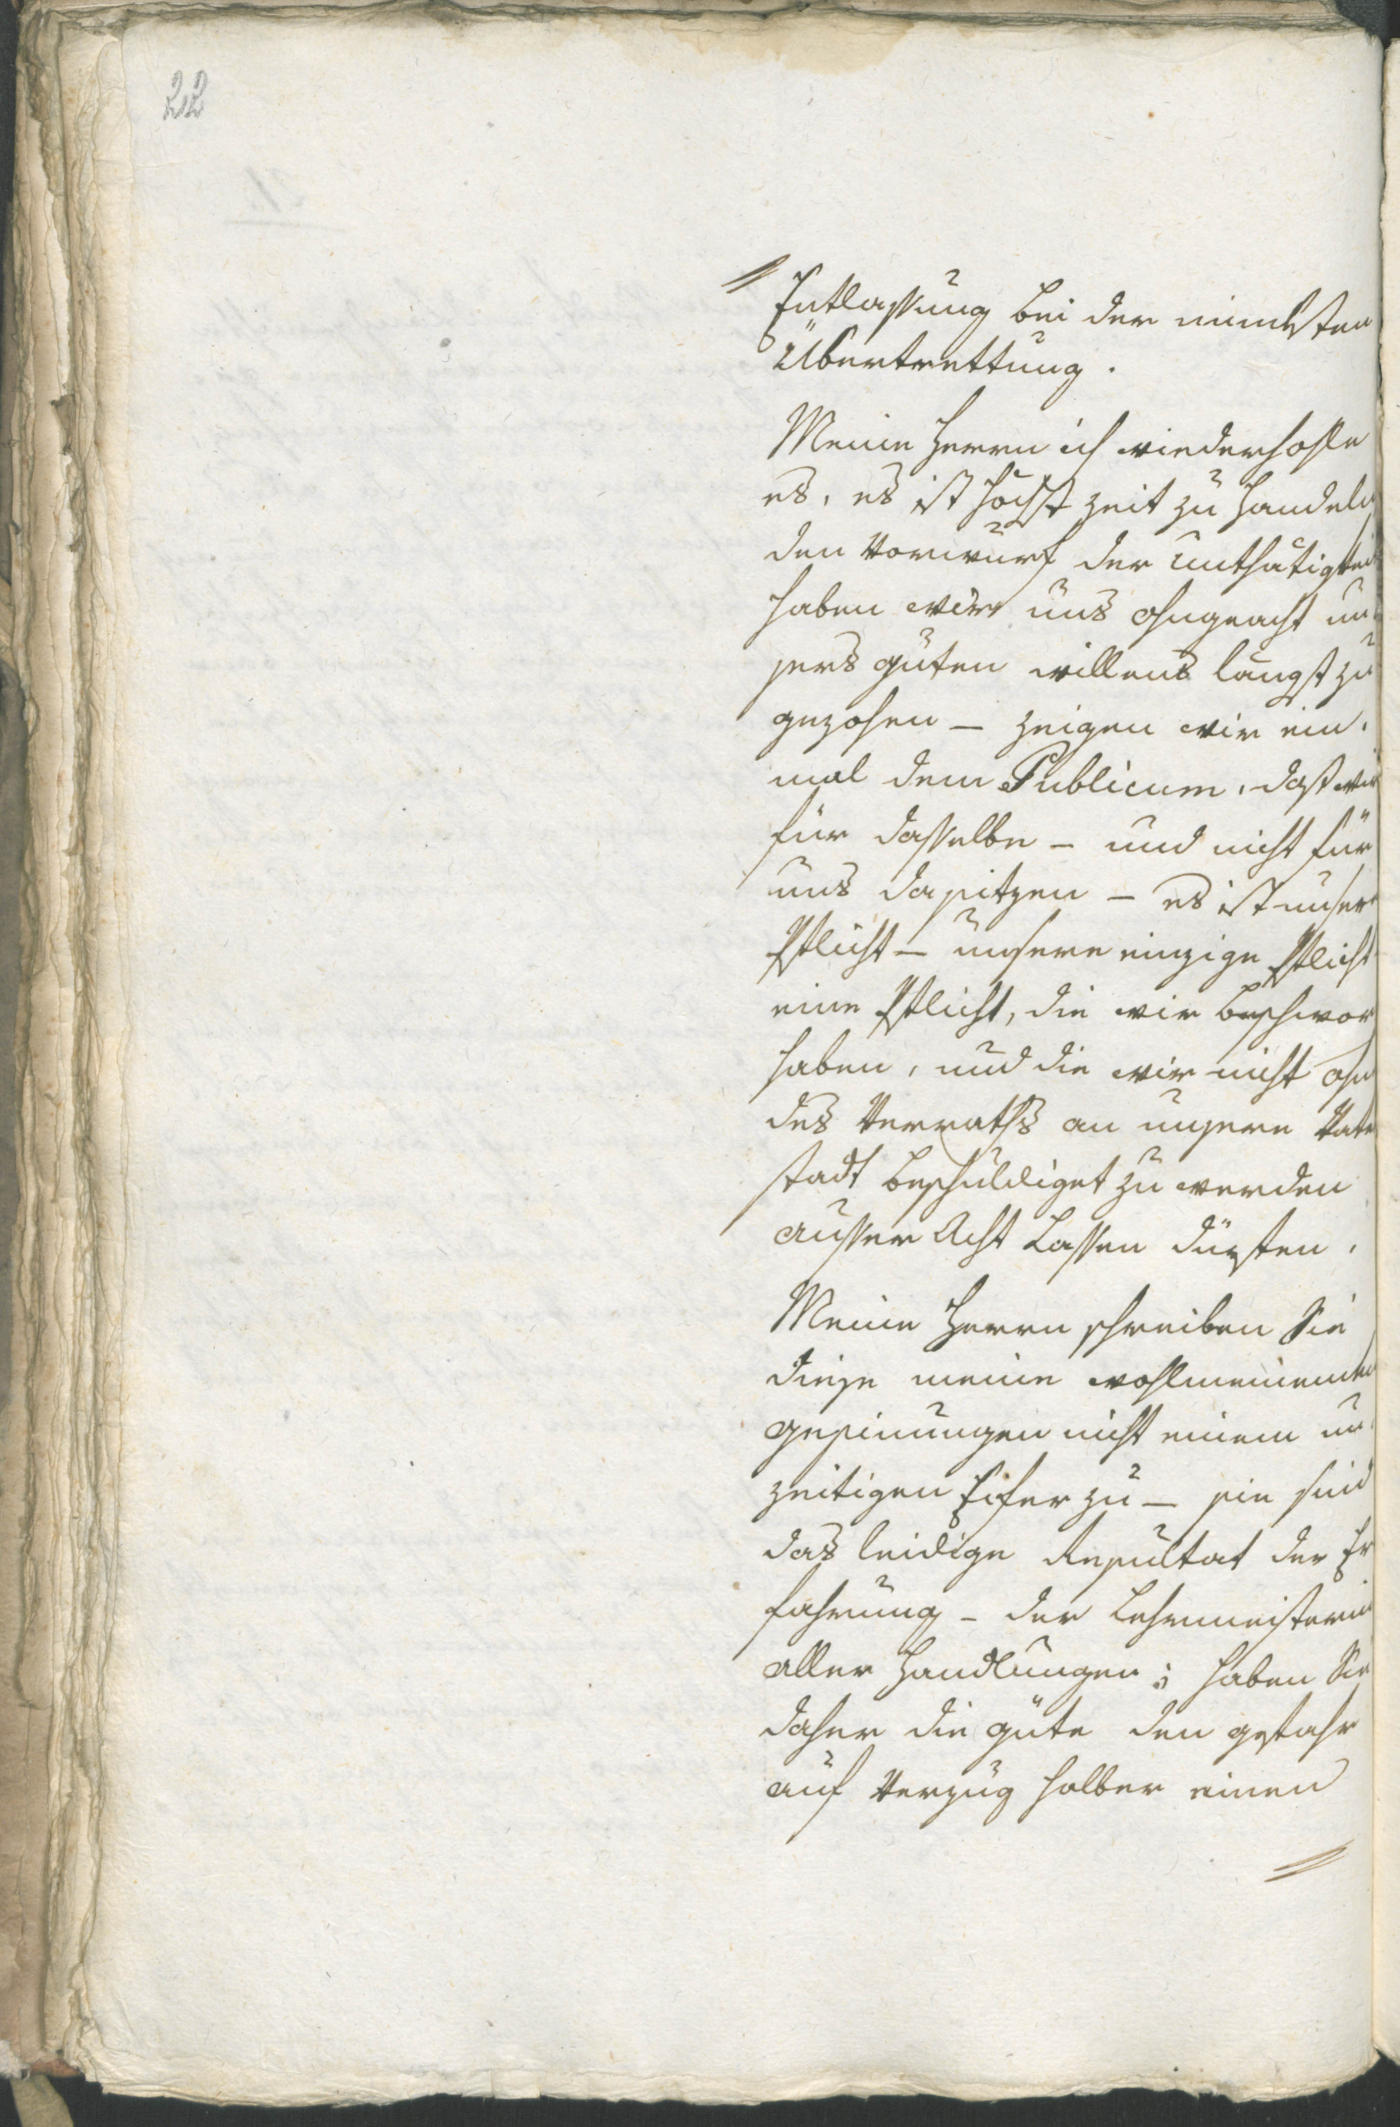 22
Entlassung bei der mindesten
Übertrettung.
Meine Herrn ich wiederhohle
es, es ist höchst zeit zu handeln
den Vorwurf der Unthätigkei
haben wir uns ohngeacht un-
sers guten willens längst zu
gezohen – zeigen wir ein-
mal dem Publicum, daß wir
für dasselbe – und nicht für
uns da sitzen – es ist unsere
Pflicht – unsere einzige Pflicht
eine Pflicht, die wir beschwor
haben, und die wir nicht ohn
des Verraths an unsere Vate
stadt beschuldiget zu werden
ausser Acht Lassen dürften.
Meine Herrn schreiben Sie
diese meine wohlmeinenden
gesinnungen nicht einem un-
zeitigen Eifer zu – sie sind
das leidige Resultat der Er
fahrung – der Lehrmeisterin
aller Handlungen; haben Sie
daher die güte den gefahr
auf Verzug halber einen